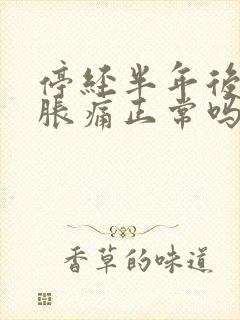 停經半年後
脹痛正常嗎
香草的味道